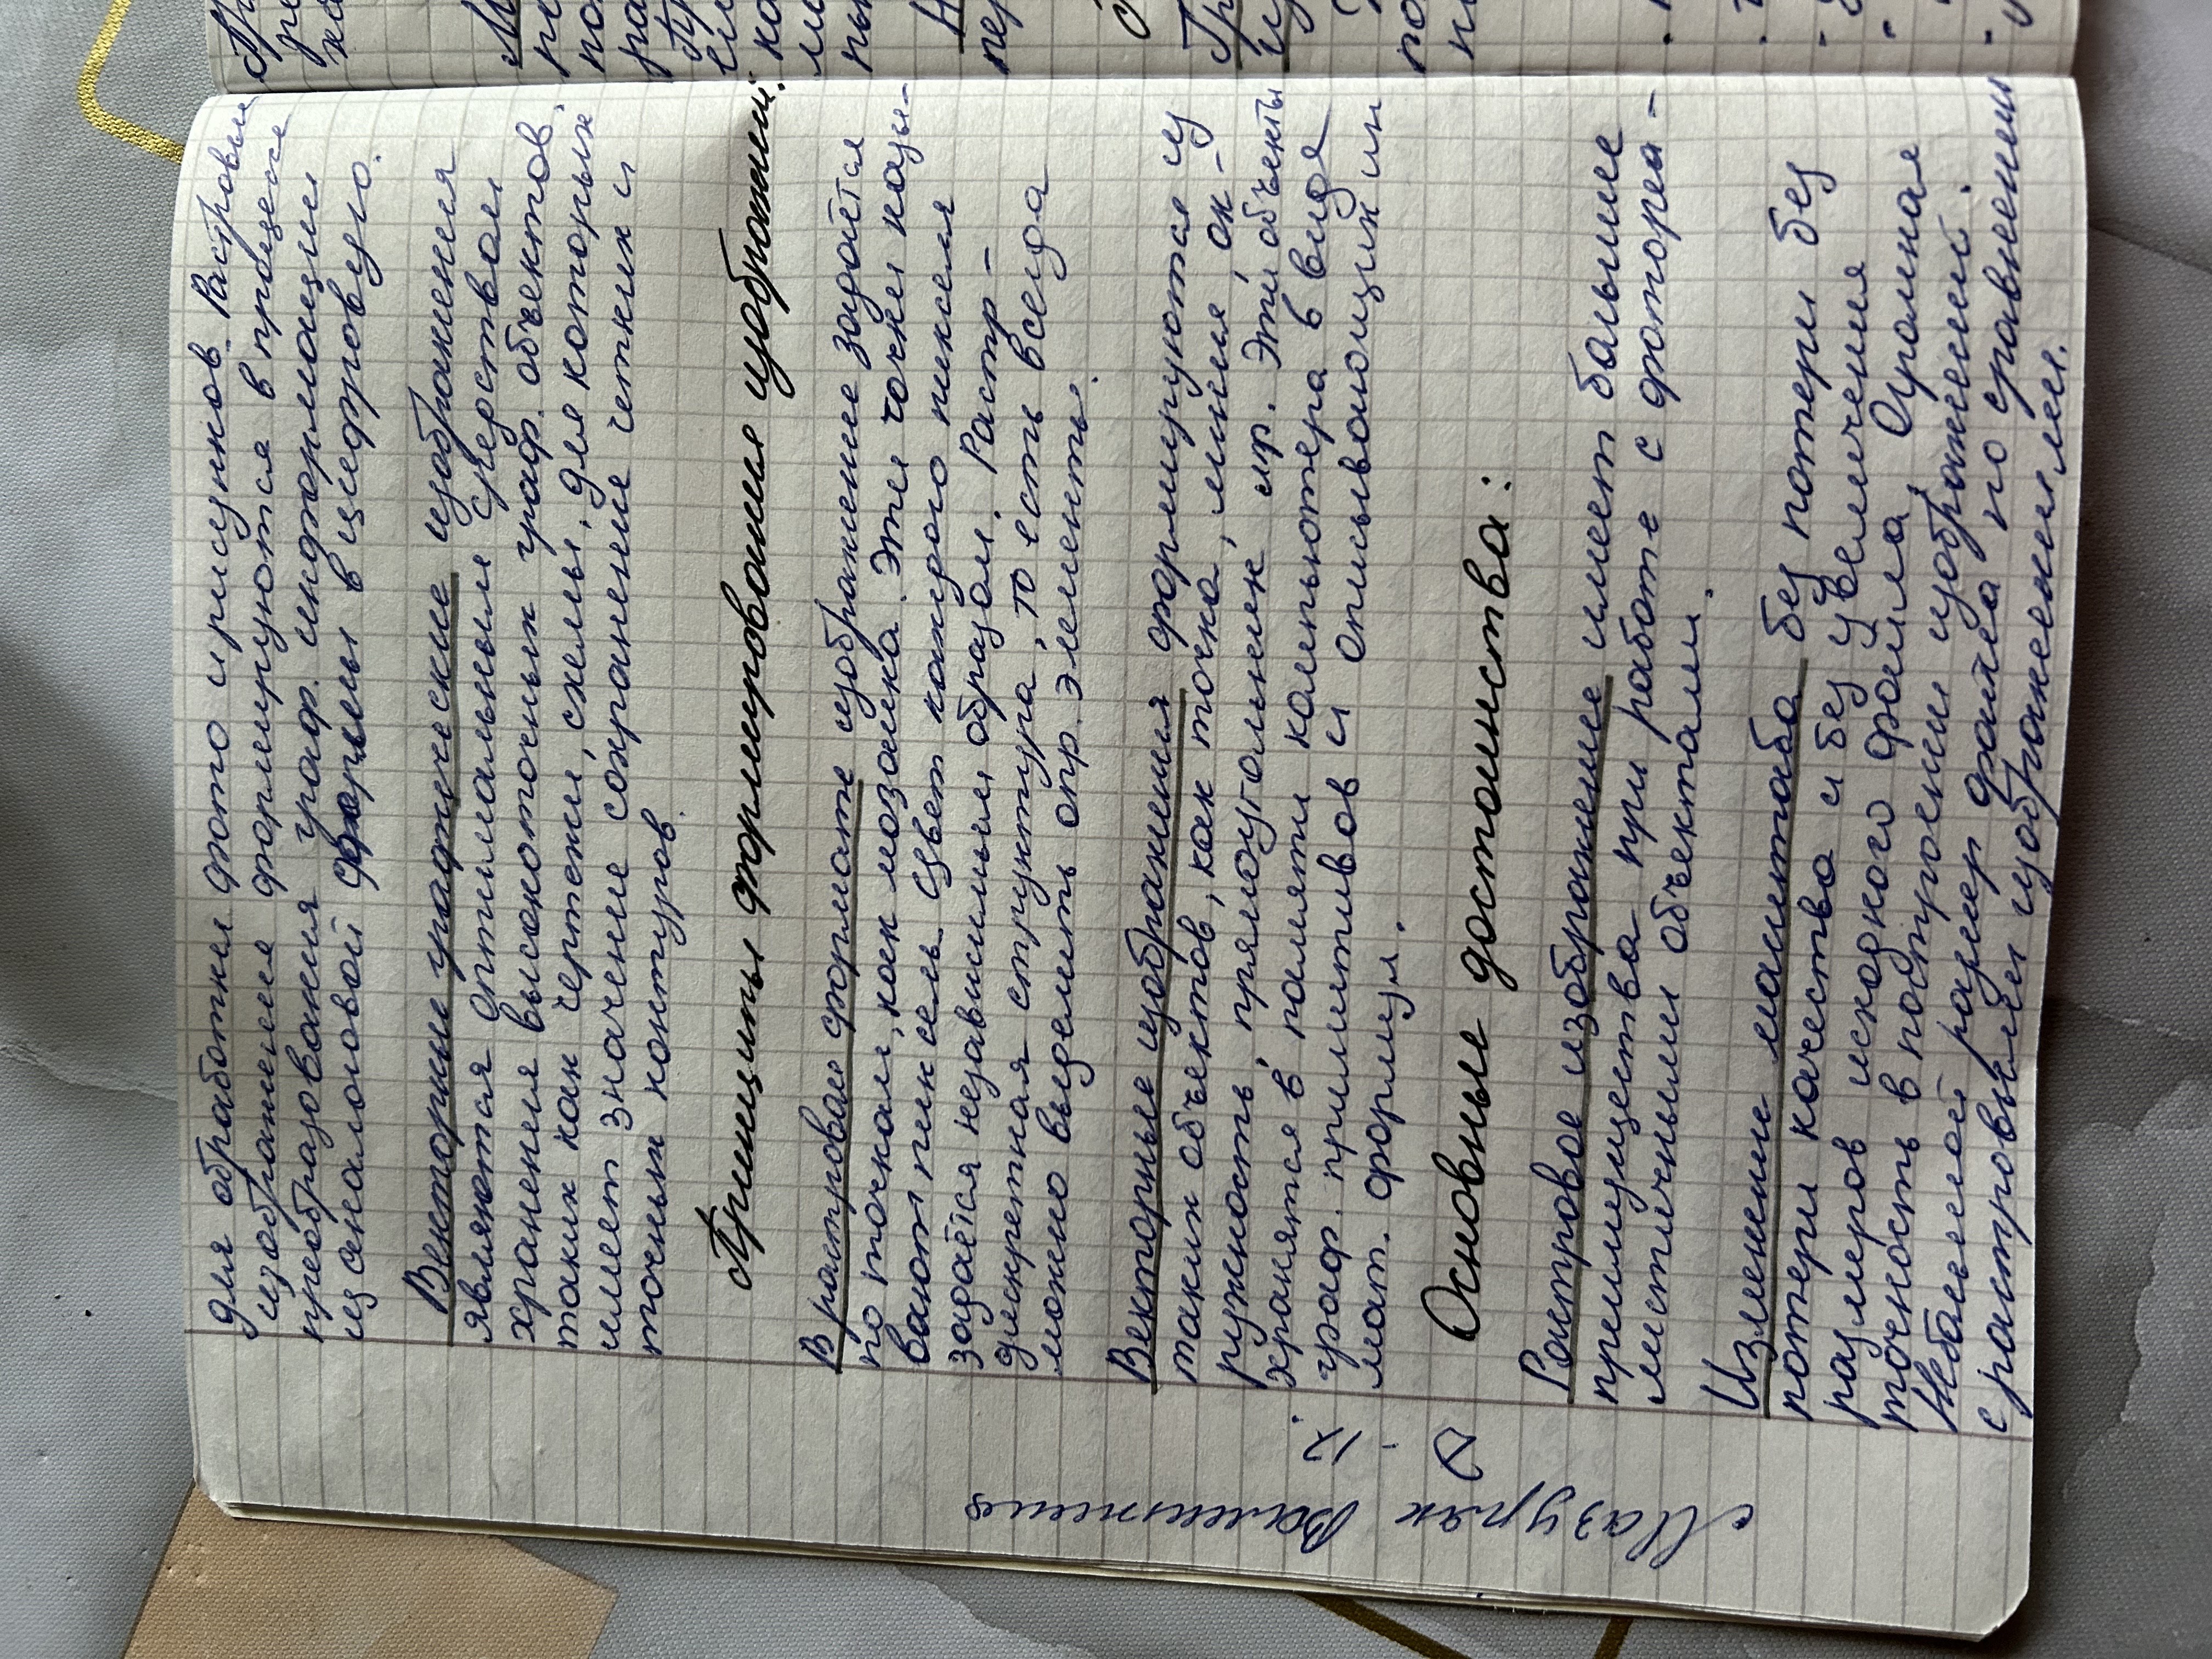 для обработки фото и рисунков. Растровые
изображения формируются в процессе
преобразования граф. информации
из аналоговой формы в цифровую.
Векторные графические изображения
являются оптимальным средством
хранения высокоточных граф. объектов,
таких как чертежи, схемы, для которых
имеет значение сохранение четких и
точных контуров.
Принципы формирования изображений:
В растровом формате изображение задаётся
по точкам, как мозаика. Эти точки назы-
вают пиксель. Цвет каждого пикселя
задаётся независимым образом. Растр -
дискретная структура, то есть всегда
можно выделить опр. элементы.
Векторные изображения формируются из
таких объектов, как точка, линия, ок-
ружность, прямоугольник, и пр. Эти объекты
хранятся в памяти компьютера в виде
граф. примитивов и описывающих их
мат. формул.
Основные достоинства:
Растровое изображение имеет большие
преимущества при работе с фотореа-
листичными объектами.
Изменении масштаба без потери без
потери качества и без увеличения
размеров исходного файла. Огромная
точность в построении изображений.
Небольшой размер файла по сравнению
с растровыми изображениями.
Мазуряк Валентина